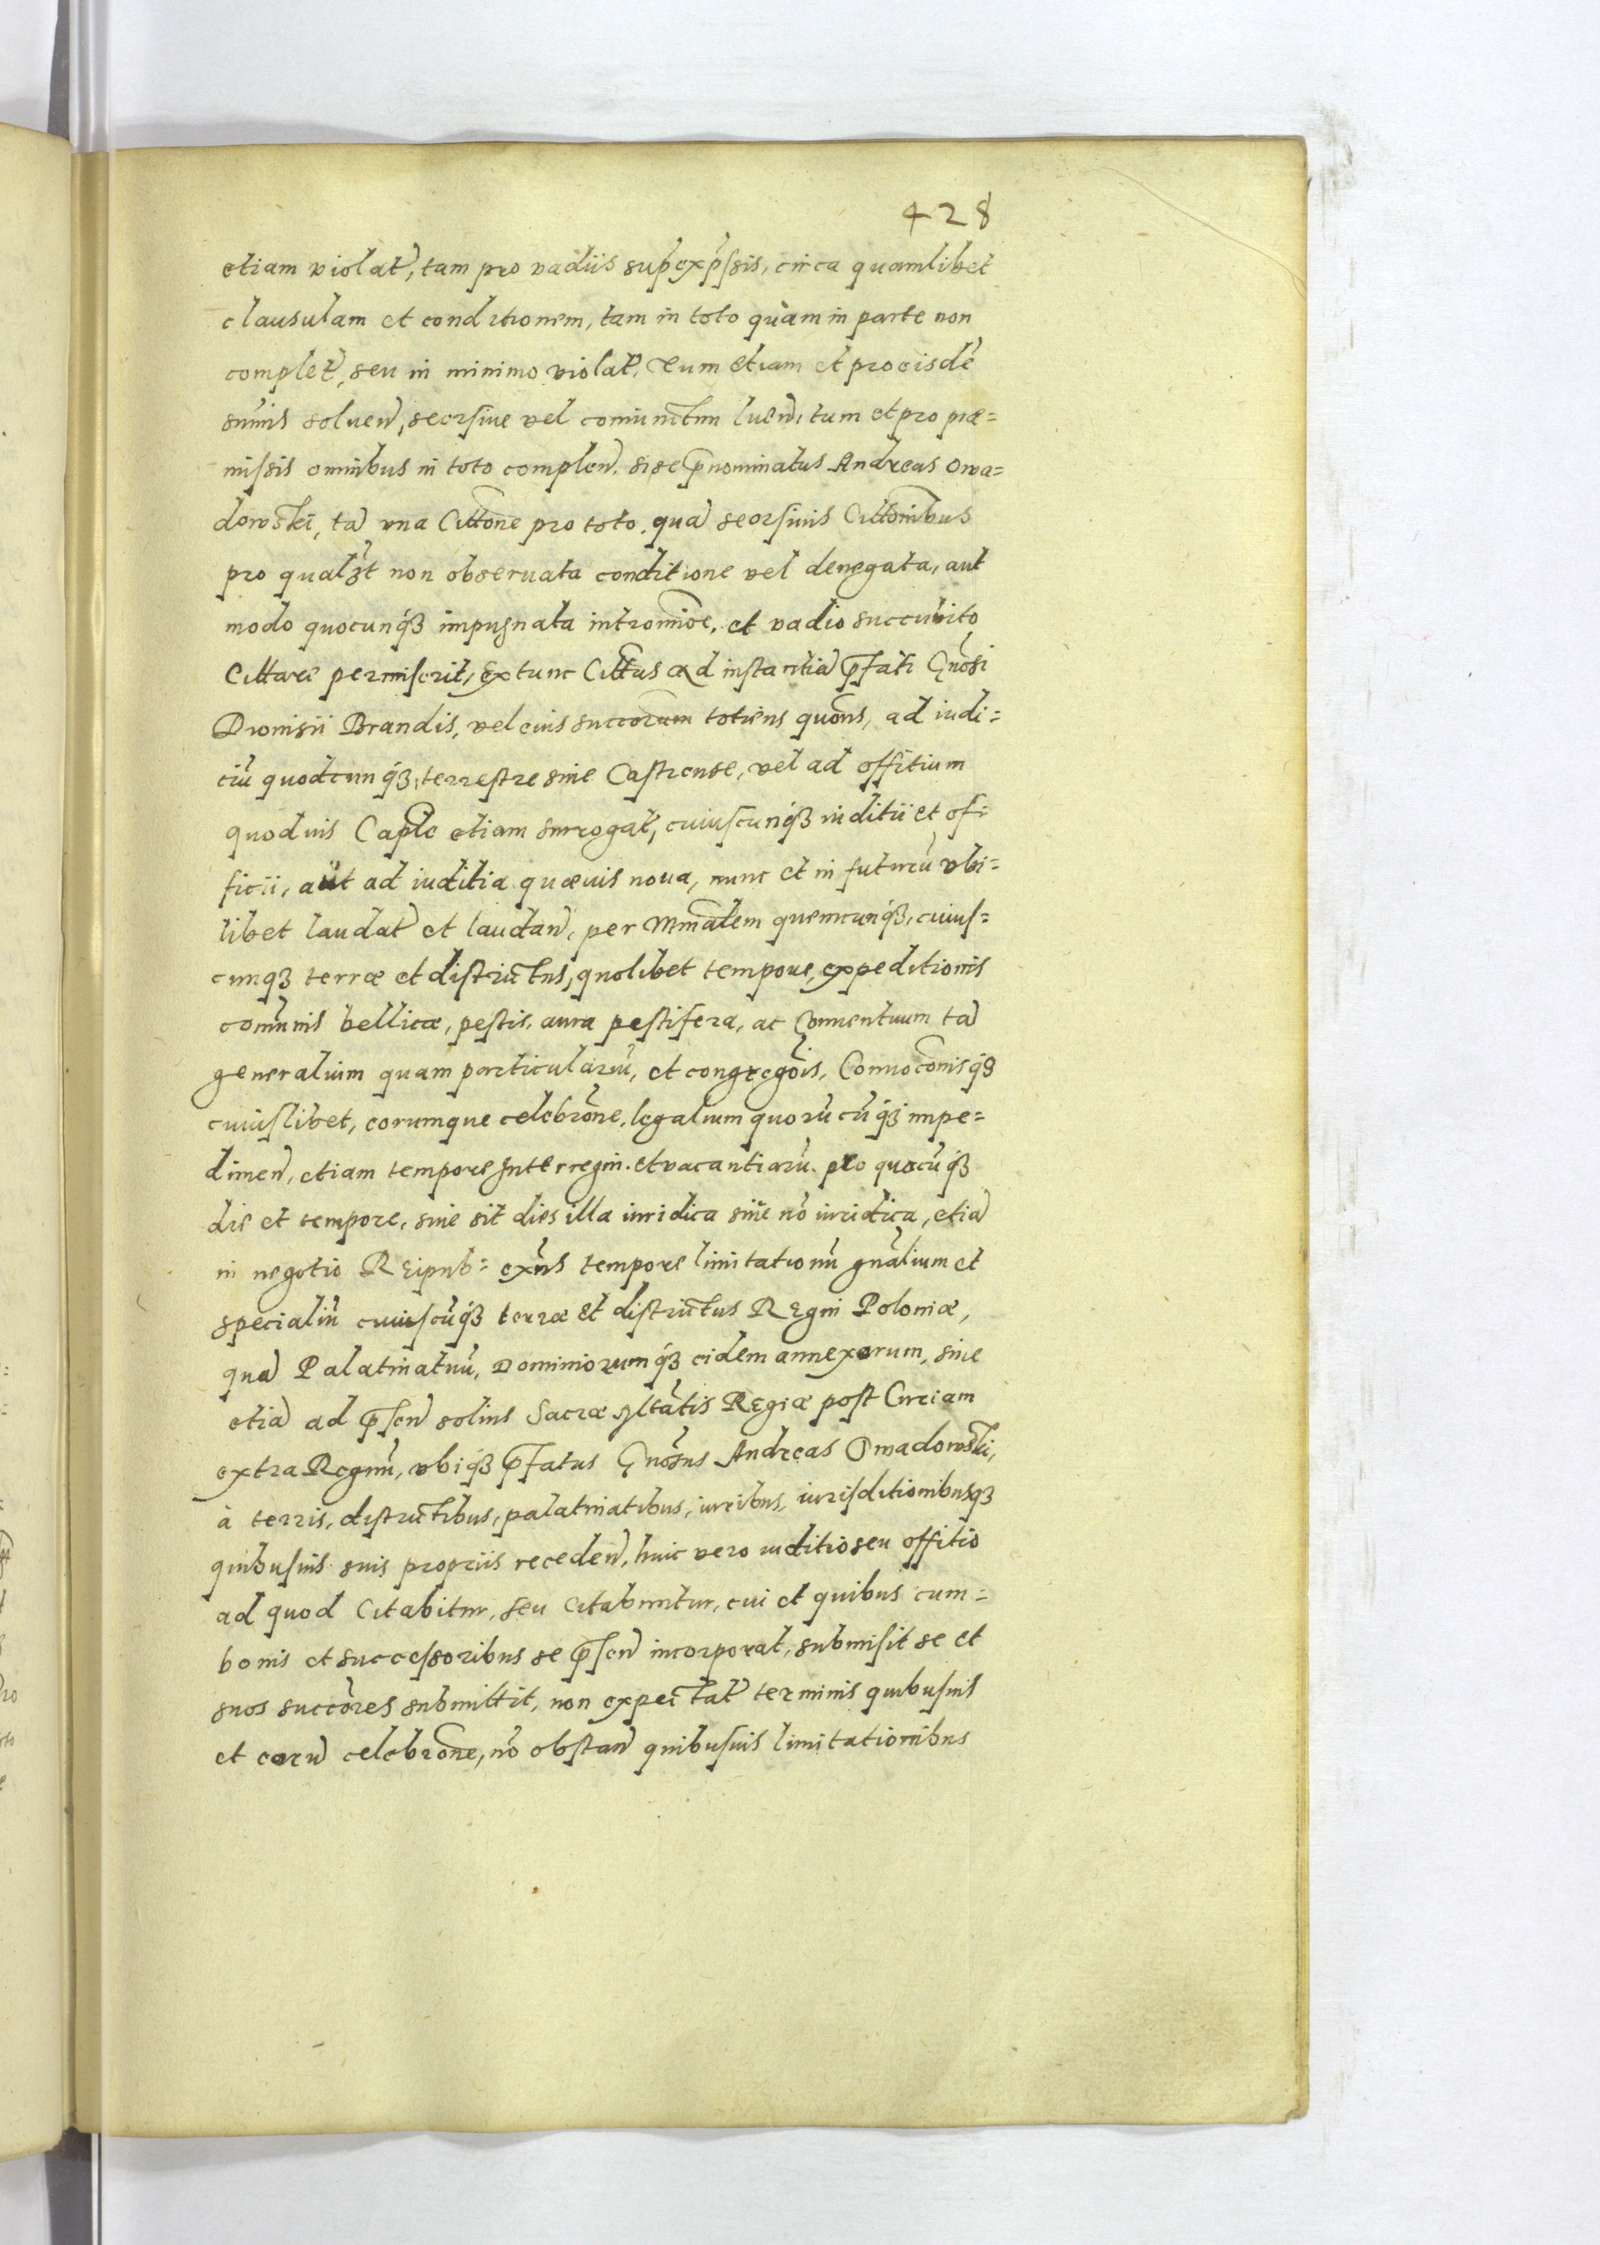 428
etiam violat̃, tam pro vadiis sup̃exp̃ssis, circa quamlibet
clausulam et conditionem, tam in toto quàm in parte non
complet̃, seu in minimo violat̃, tum etiam et pro eisdē
sum̃is soluen̄, seorsiue vel coniunctim luen̄, tum et pro præ=
missis omnibus in toto complen̄. si se p̄nominatus Andreas Owa=
dowski, tā vna Citt͠one pro toto, quā seorsiuis Citt͠onibus
pro qualꝫt non obseruata conditione vel denegata, aut
modo quocunqꝫ impugnata introm̃ioe, et vadio succubito
Cittari permiserit, Extunc Citt͠us ad instantiā p̄fati Gñosi
Dionisii Brandis, vel eius succ͠orum totiens quõns, ad iudi=
ciū quodcunqꝫ, terrestre siue Castrense, vel ad offitium
quoduis Caplẽ etiam surrogat̃, cuiuscunqꝫ iuditii et offi
ficii, aut ad iuditia quæuis noua, nunc et in futurū vbi=
libet laudat̃ et laudan̄, per Mm̃alem quemcunqꝫ, cuius=
cunqꝫ terræ et districtus, quolibet tempore, expeditionis
com̃unis bellicæ, pestis, aura pestifera, ac Conuentuum tā
generalium quam particulariū, et congreg͠ois, Conuoc͠onisqꝫ
cuiuslibet, eorumque celebr͠one, legalium quorūcūqꝫ impe=
dimen̄, etiam tempore Interregni. et vacantiarū. pro quocūqꝫ
die et tempore, siue sit dies illa iuridica siue nō iuridica, etiā
in negotio Reipub= exñs tempore limitationū gñalium et
specialiū cuiuscūqꝫ terræ et districtus Regni Poloniæ,
quā Palatinatuū, Dominiorumqꝫ eidem annexorum, siue
etiā ad p̄sen̄ solius Sacræ Mtãtis Regiæ post Curiam
extra Regnū, vbiqꝫ p̄fatus Gñosus Andreas Owadowski,
à terris, districtibus, palatinatibus, iuribus, iurisditionibusqꝫ
quibusuis suis propriis receden̄, huic vero iuditio seu offitio
ad quod Citabitur, seu citabuntur, cui et quibus cum=
bonis et successoribus se p̄sen̄ incorporat, submisit se et
suos succ͠ores submittit, non expectat̃ terminis quibusuis
et eorū celebr͠one, nō obstan̄ quibusuis limitationibus